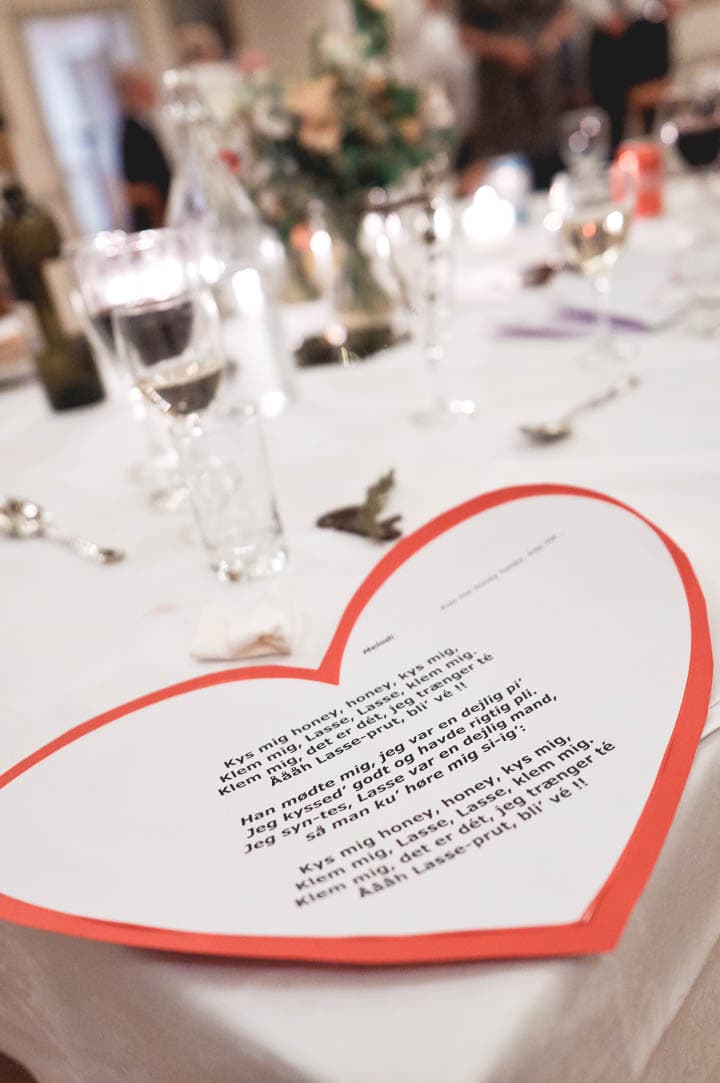 Melodi
Kiss me honey honey, kiss me
Kys mig honey, honey, kys mig,
Klem mig, Lasse, Lasse, klem mig.
Klem mig, det er dét, jeg trænger té
Åååh Lasse-prut, bli' vé !!
Han mødte mig, jeg var en dejlig pi'
Jeg kyssed' godt og havde rigtig pli.
Jeg syn-tes, Lasse var en dejlig mand,
så man ku' høre mig si-ig':
Kys mig honey, honey, kys mig,
Klem mig, Lasse, Lasse, klem mig.
Klem mig, det er dét, jeg trænger té
Åååh Lasse-prut, bli' vé !!